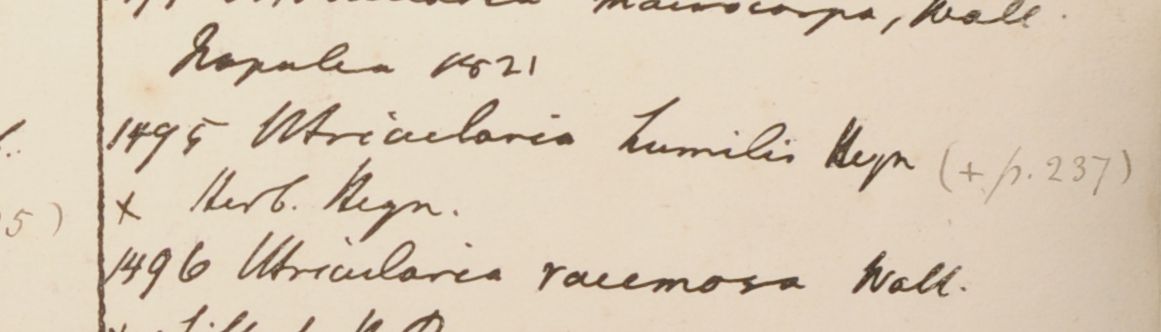 Utricularia macrocarpa, Wall.
Napalia 1821
1495 Utricularia humilis Heyn (+ p. 237)
× Herb. Heyn.
5)
1496 Utricularia racemosa Wall.